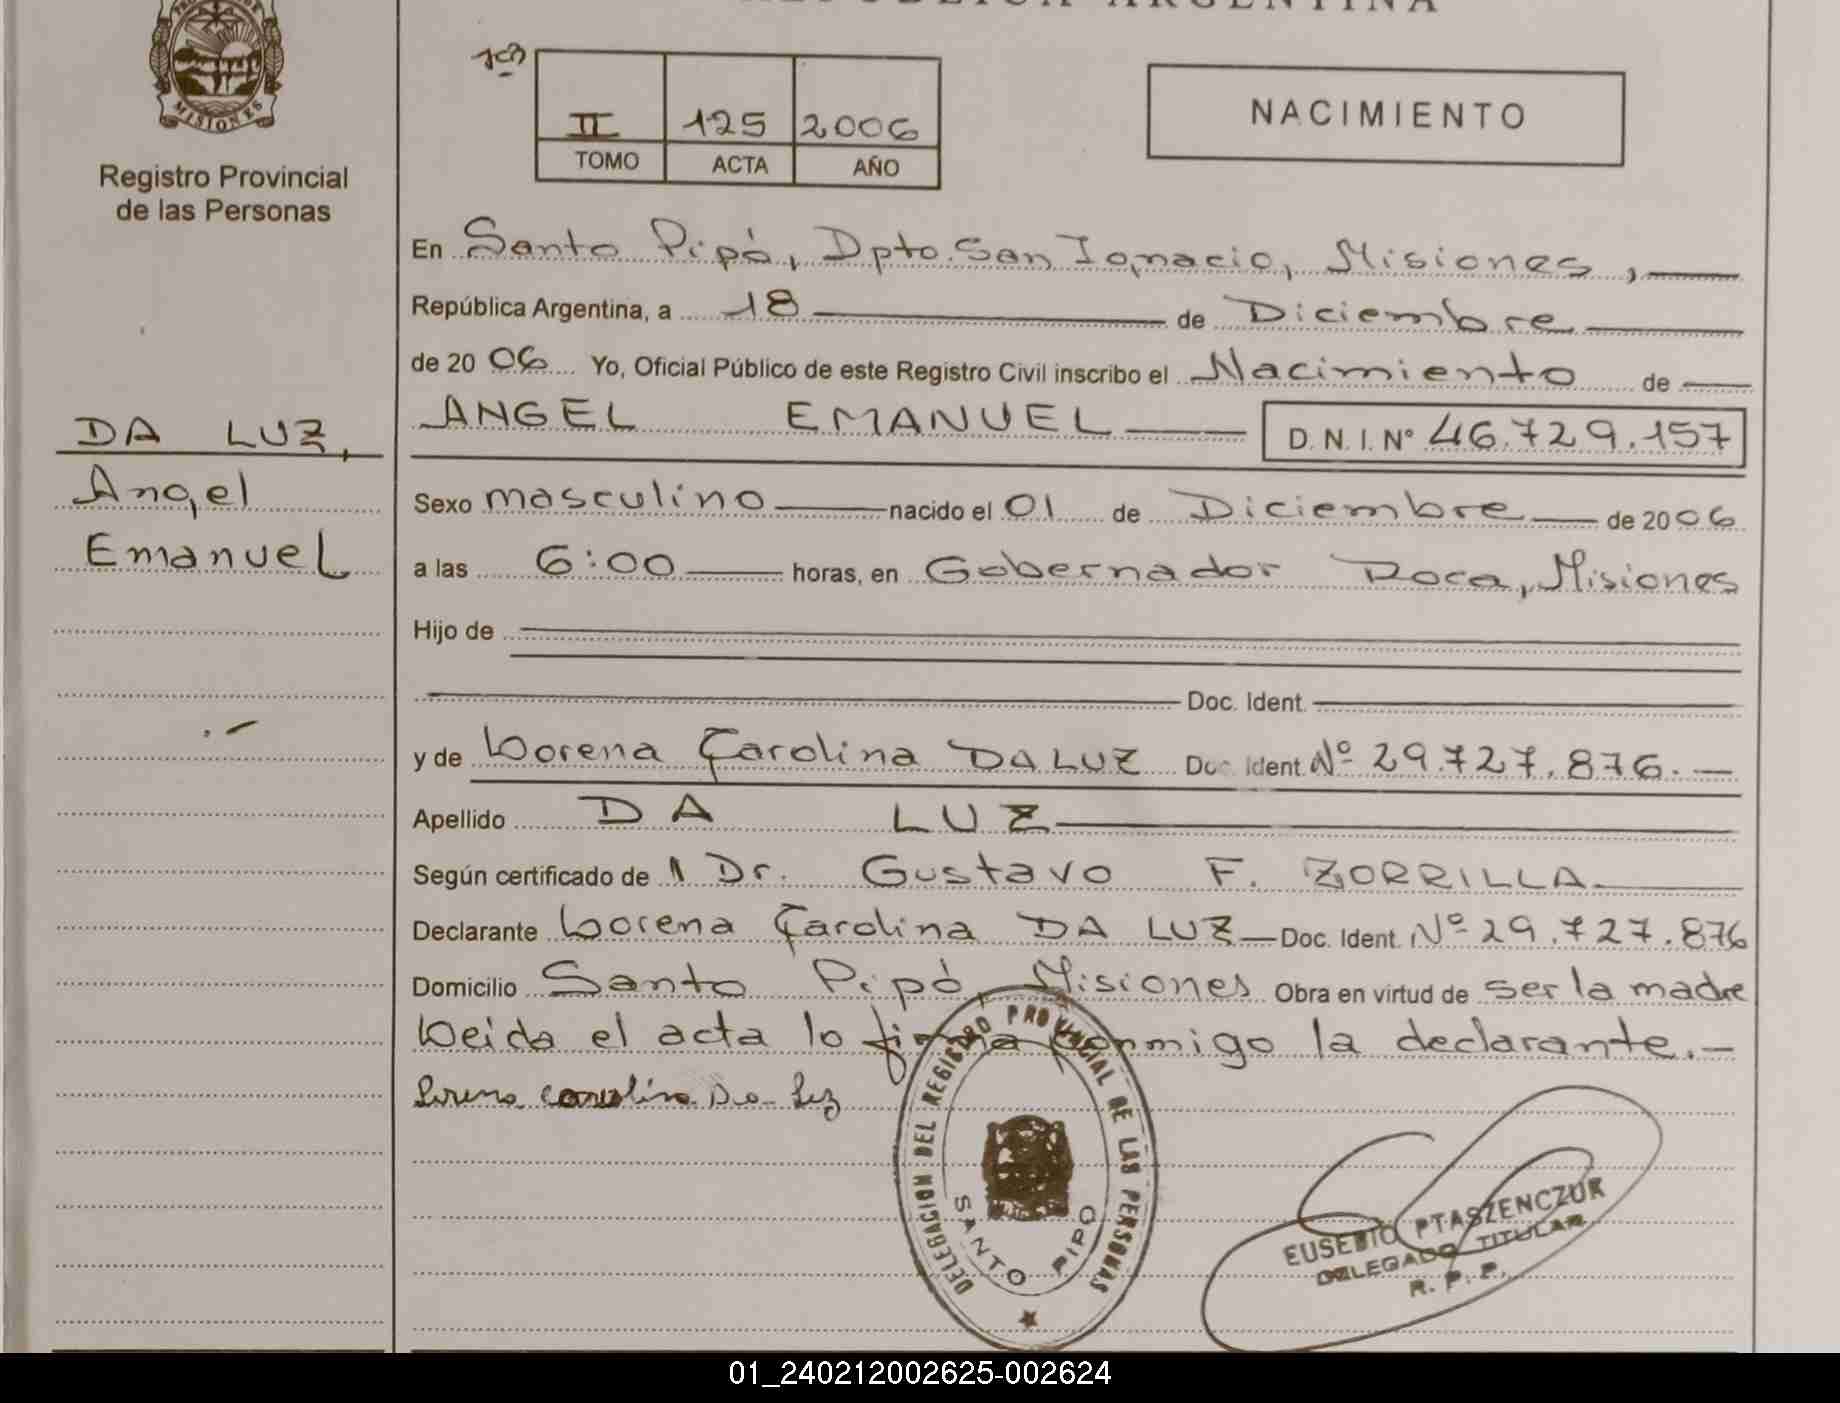 REPÚBLICA ARGENTINA
MISIONES
Registro Provincial
de las Personas
DA LUZ,
Angel
Emanuel
II 125 2006
TOMO ACTA AÑO
NACIMIENTO
En Santo Pipó, Dpto. San Ignacio, Misiones,
República Argentina, a 18 de Diciembre
de 2006 Yo, Oficial Público de este Registro Civil inscribo el Nacimiento de
ANGEL EMANUEL D.N.I. Nº 46.729.157
Sexo masculino nacido el 01 de Diciembre de 2006
a las 6:00 horas, en Gobernador Roca, Misiones
Hijo de
Doc. Ident.
y de Lorena Carolina DA LUZ Doc. Ident. Nº 29.727.876.
Apellido DA LUZ
Según certificado de Dr. Gustavo F. ZORRILLA
Declarante Lorena Carolina DA LUZ Doc. Ident. Nº 29.727.876
Domicilio Santo Pipó, Misiones Obra en virtud de ser la madre
Leida el acta lo firma conmigo la declarante.-
Lorena Carolina Da Luz
DELEGACION DEL REGISTRO PROVINCIAL DE LAS PERSONAS
SANTO PIPO
EUSEBIO PTASZENCZUK
DELEGADO TITULAR
R. P. P.
01_240212002625-002624